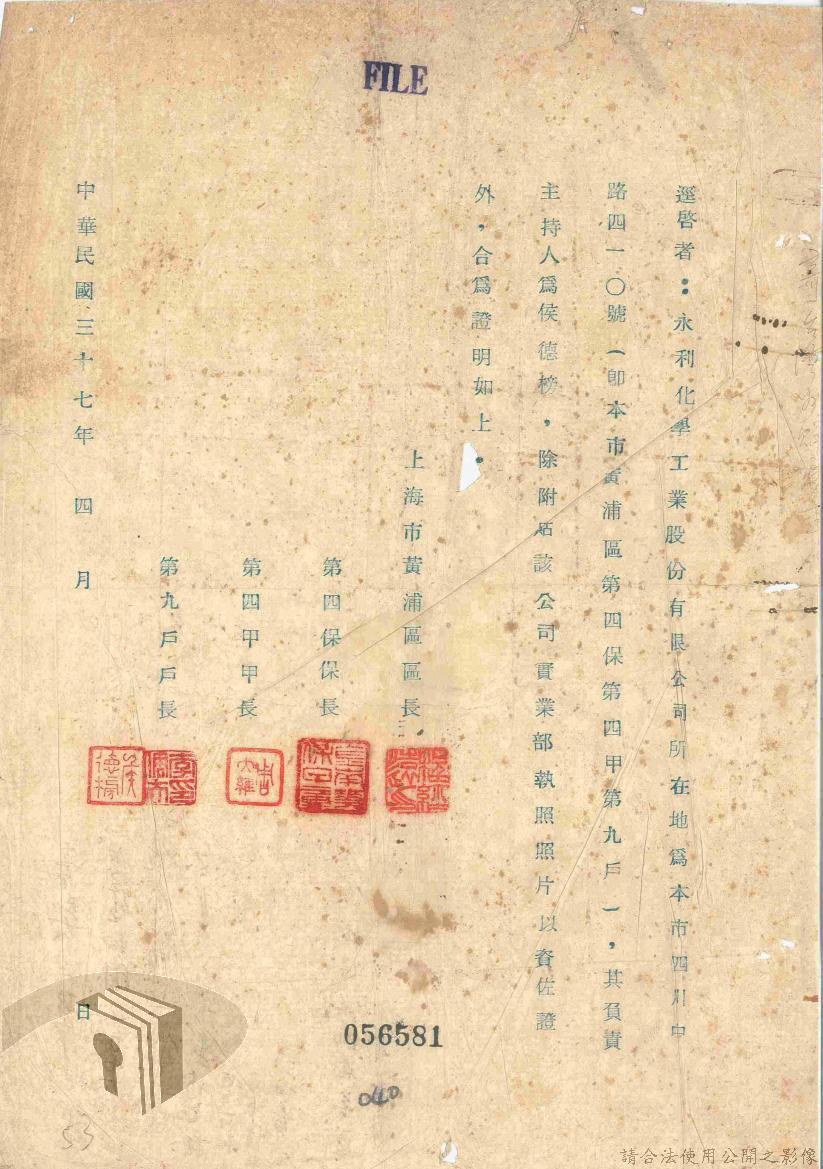 FILE
逕啓者：永利化學工業股份有限公司所在地爲本市四川中
路四一〇號（卽本市黃浦區第四保第四甲第九戶），其負責
主持人爲侯德榜，除附店該公司實業部執照照片以資佐證
外，合爲證明如上。
上海市黃浦區區長
第四保保長
第四甲甲長
第九戶戶長
侯德榜
中華民國三十七年 四 月 日
056581
040
53
請合法使用公開之影像